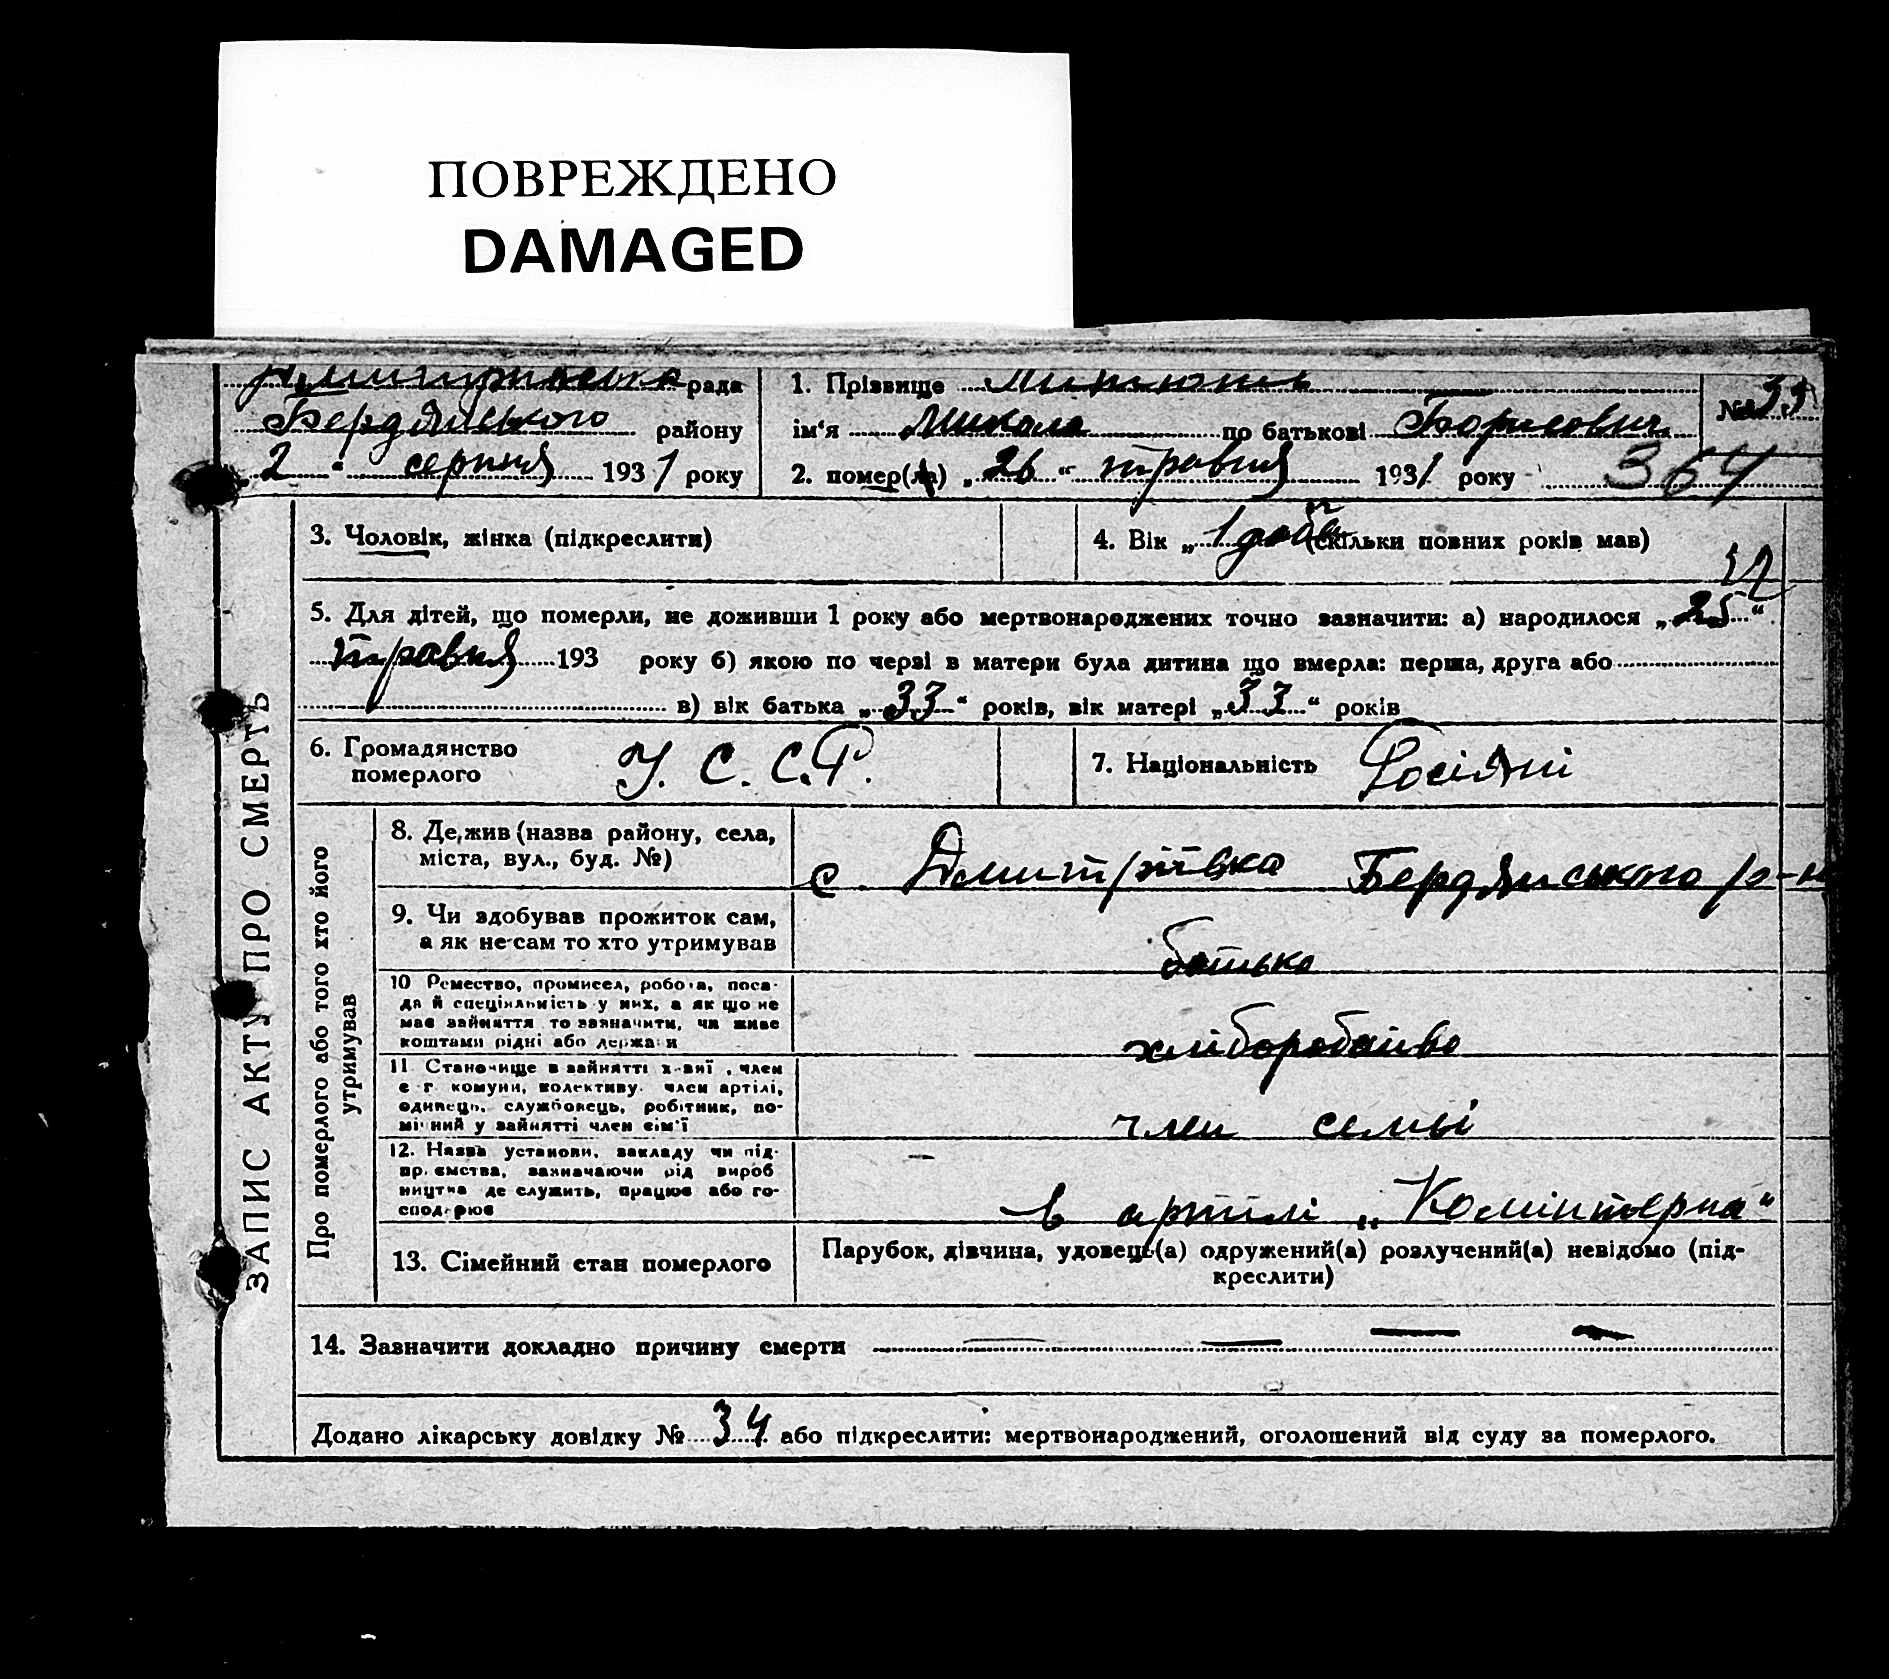 ПОВРЕЖДЕНО
DAMAGED
рада
Бердянського району
2 " серпня 1931 року
1. Прізвище
ім'я Микола по батькові Борисович
№ 33
2. помер(ла) „ 26 " травня 1931 року 364
ЗАПИС АКТУ ПРО СМЕРТЬ
3. Чоловік, жінка (підкреслити)
4. Вік „ 1 доба (скільки повних років мав)
5. Для дітей, що померли, не доживши 1 року або мертвонароджених точно зазначити: а) народилося „ 25 "
травня 193 року б) якою по черзі в матери була дитина що вмерла: перша, друга або
в) вік батька „ 33 " років, вік матері „ 33 " років
6. Громадянство
померлого
У. С. С. Р.
7. Національність Росіяни
Про померлого або того хто його
утримував
8. Де жив (назва району, села,
міста, вул., буд. №)
с. Дмитрівка Бердянського р-н
9. Чи здобував прожиток сам,
а як не сам то хто утримував
батько
10 Ремество, промисел, робота, поса-
да й спеціяльність у них, а як що не
має зайняття то зазначити, чи живе
коштами рідні або держави
хліборобство
11 Становище в зайнятті член
с г. комуни, колективу член артілі,
одинець, службовець, робітник, по-
мічний у зайнятті член сім'ї
член семьі
12. Назва установи, закладу чи під-
приємства, зазначаючи рід вироб
ництва де служить, працює або го-
сподарює
в артілі „Комінтерна"
13. Сімейний стан померлого
Парубок, дівчина, удовець(а) одружений(а) розлучений(а) невідомо (під-
креслити)
14. Зазначити докладно причину смерти
Додано лікарську довідку № 34 або підкреслити: мертвонароджений, оголошений від суду за померлого.